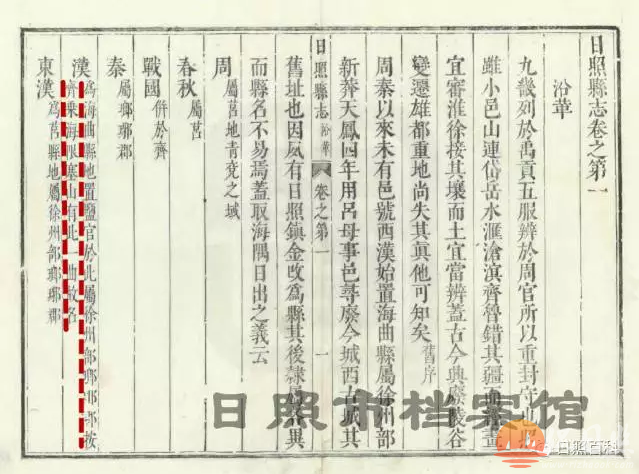 日照縣志卷之第一
沿革
九畿列於禹貢五服辨於周官所以重封守也
雖小邑山連岱岳水滙滄溟齊魯錯其疆而畫
宜審淮徐接其壤而土宜當辨蓋古今興廢陵谷
變遷雄都重地尚失其眞他可知矣舊序
周秦以來未有邑號西漢始置海曲縣屬徐州部
新莽天鳳四年用呂母事邑尋廢今城西古城其
日照縣志 沿革 卷之第一 一
舊址也因夙有日照鎮金改爲縣其後隸屬異
而縣名不易焉蓋取海隅日出之義云
周 屬莒地青兗之域
春秋 屬莒
戰國 併於齊
秦 屬瑯琊郡
漢 爲海曲縣也置鹽官於此屬徐州部瑯琊郡按
齊乘海塞山有此一曲故名
東漢 爲莒縣地屬徐州部瑯琊郡
日照市档案馆
日照百科